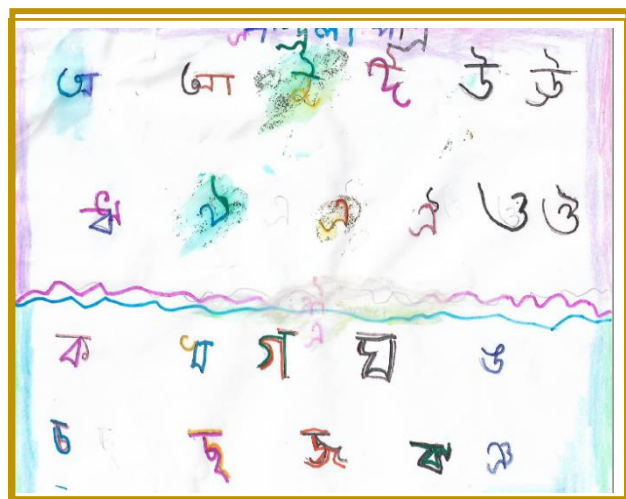 অ আ ই ঈ উ ঊ
ঋ এ ঐ ও ঔ
ক খ গ ঘ ঙ
চ ছ জ ঝ ঞ